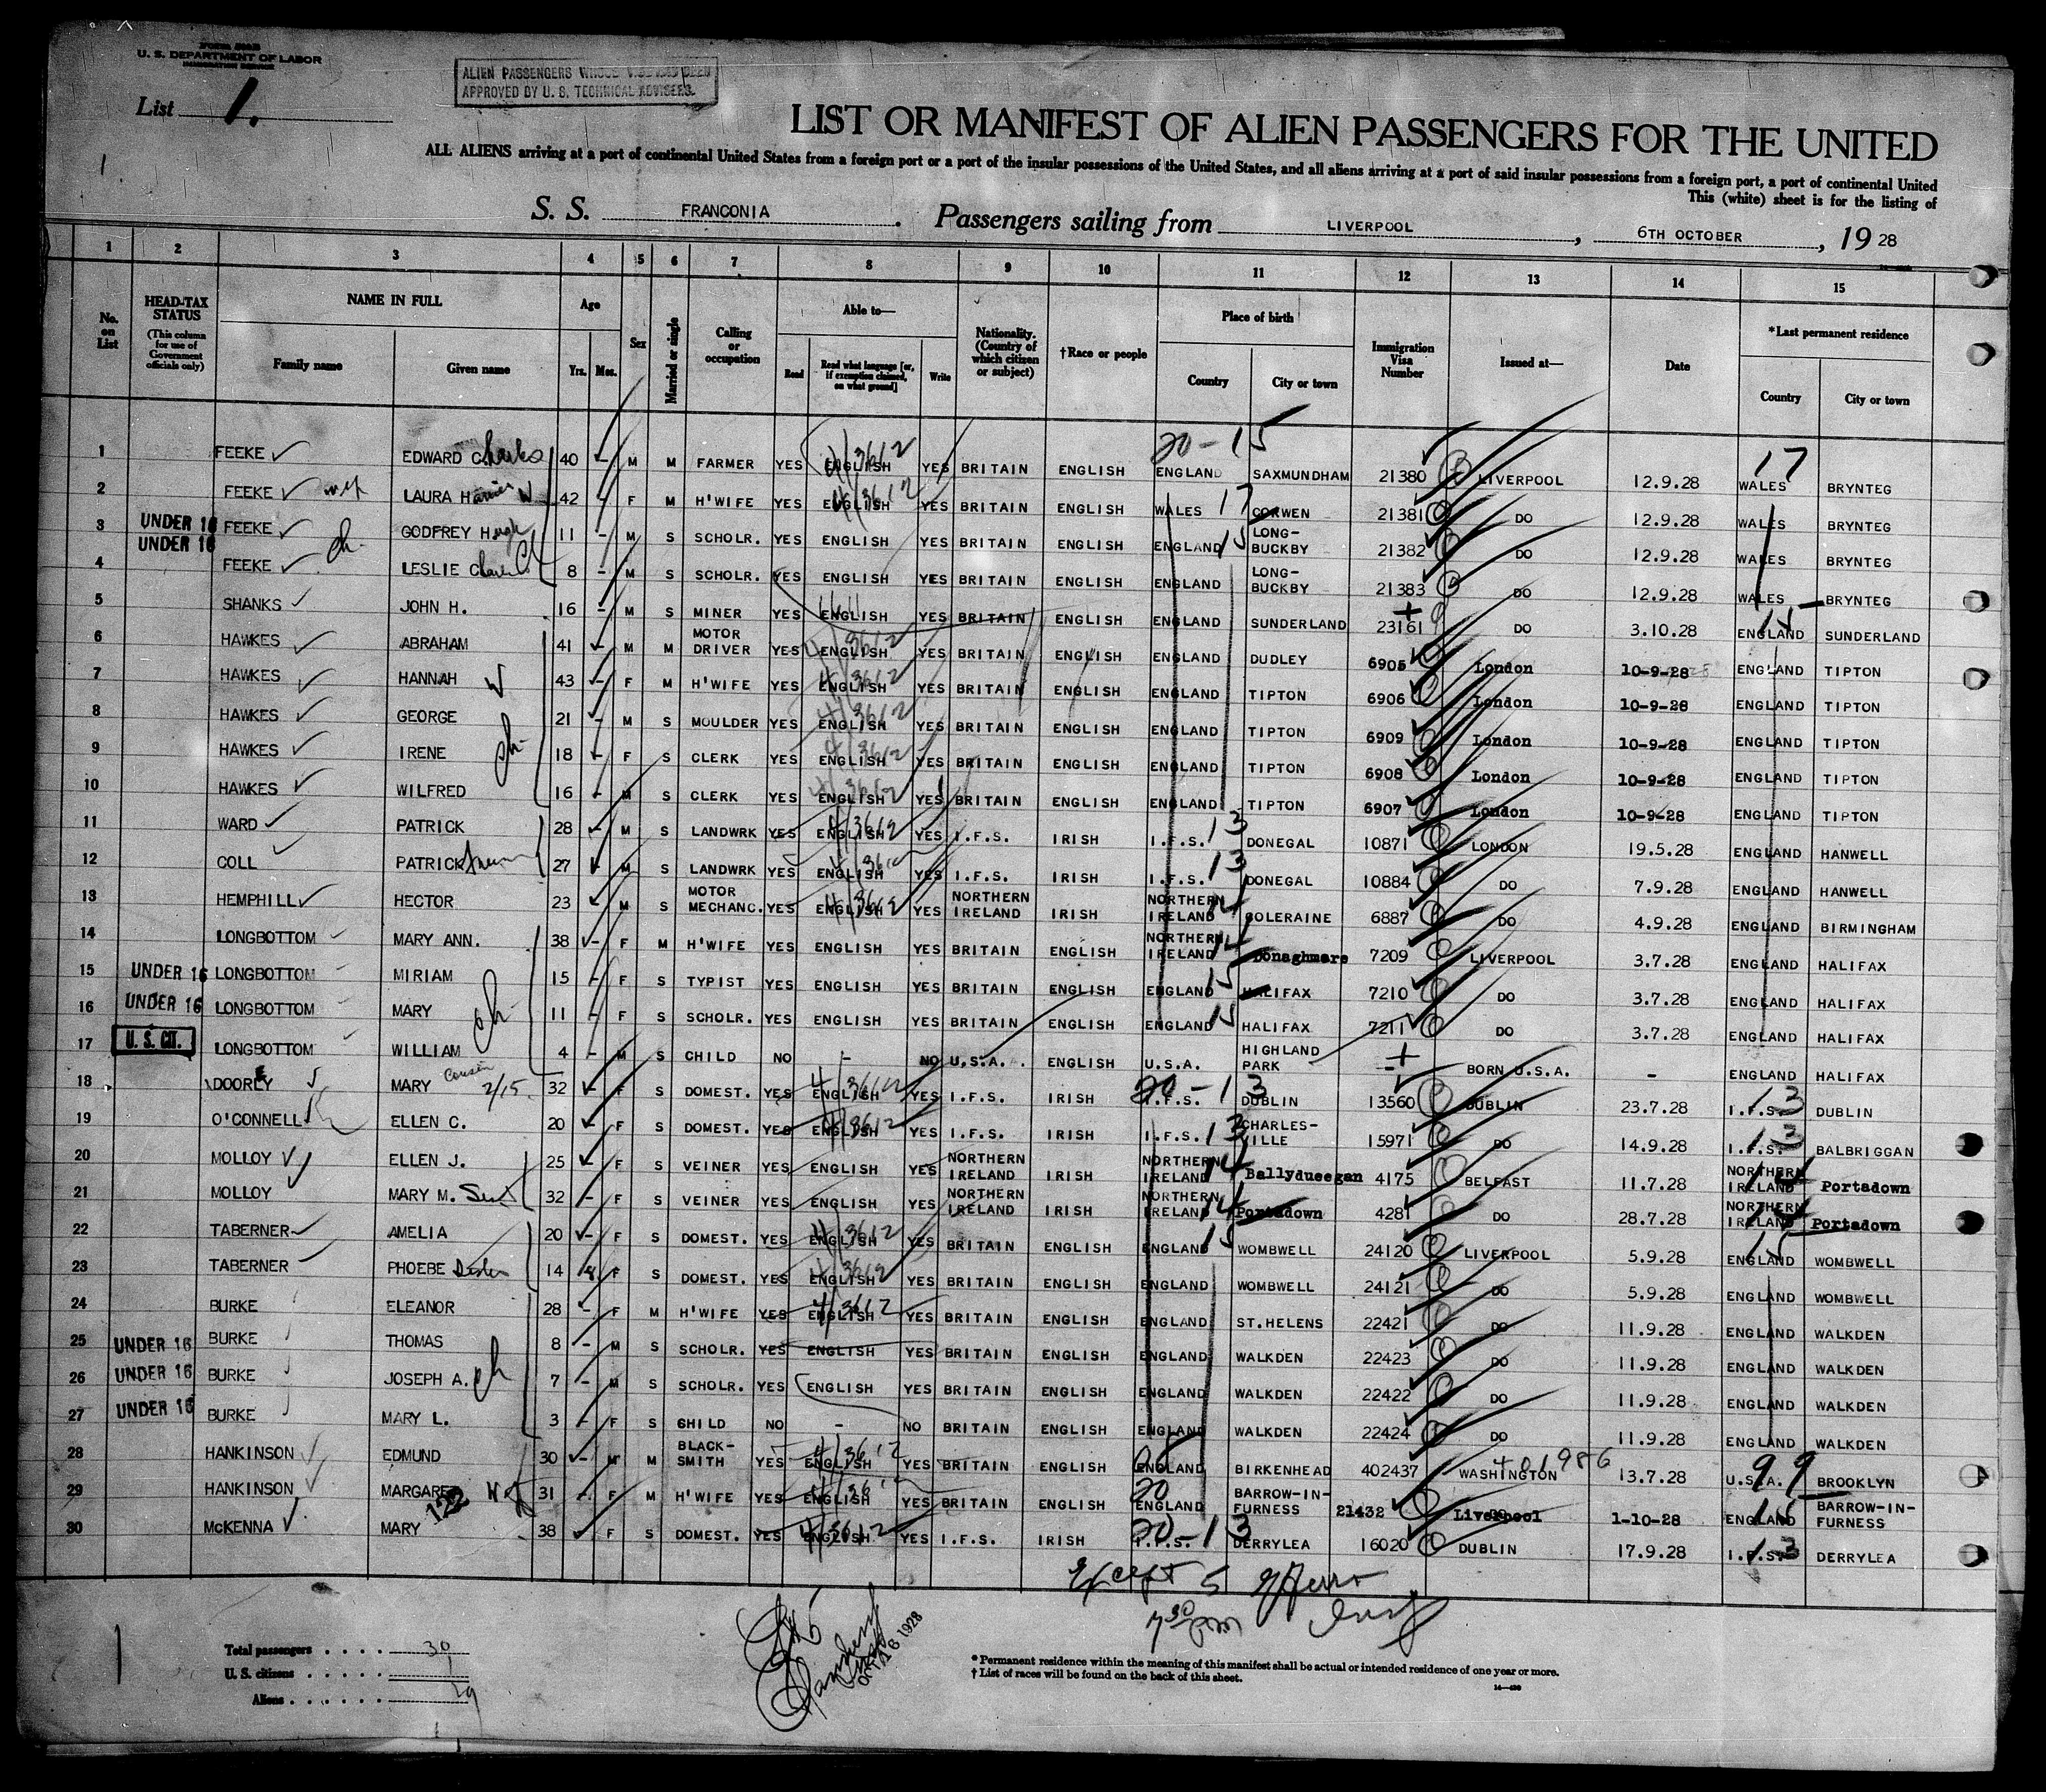 Form 500B
U. S. DEPARTMENT OF LABOR
IMMIGRATION SERVICE
ALIEN PASSENGERS WHOSE
APPROVED BY U. S. TECHNICAL ADVISERS.
List 1.
1
LIST OR MANIFEST OF ALIEN PASSENGERS FOR THE UNITED
ALL ALIENS arriving at a port of continental United States from a foreign port or a port of the insular possessions of the United States, and all aliens arriving at a port of said insular possessions from a foreign port, a port of continental United
This (white) sheet is for the listing of
S. S. FRANCONIA. Passengers sailing from LIVERPOOL, 6TH OCTOBER, 19 28
1 2 3 4 5 6 7 8 9 10 11 12 13 14 15
No. on List
HEAD-TAX STATUS (This column for use of Government officials only)
NAME IN FULL Family name Given name
Age Yrs. Mos.
Sex
Married or single
Calling or occupation
Able to— Read Read what language [or, if exemption claimed, on what ground] Write
Nationality. (Country of which citizen or subject)
†Race or people
Place of birth Country City or town
Immigration Visa Number
Issued at—
Date
*Last permanent residence Country City or town
1 FEEKE EDWARD Charles 40 - M M FARMER YES ENGLISH YES BRITAIN ENGLISH ENGLAND SAXMUNDHAM 21380 LIVERPOOL 12.9.28 WALES BRYNTEG
2 FEEKE wif LAURA Harriet W 42 - F M H'WIFE YES ENGLISH YES BRITAIN ENGLISH WALES 17 CORWEN 21381 DO 12.9.28 WALES BRYNTEG
3 UNDER 16 FEEKE GODFREY Hugh 11 - M S SCHOLR. YES ENGLISH YES BRITAIN ENGLISH ENGLAND 15 LONG-BUCKBY 21382 DO 12.9.28 WALES BRYNTEG
4 UNDER 16 FEEKE ch LESLIE 8 - M S SCHOLR. YES ENGLISH YES BRITAIN ENGLISH ENGLAND LONG-BUCKBY 21383 DO 12.9.28 WALES BRYNTEG
5 SHANKS JOHN H. 16 - M S MINER YES ENGLISH YES BRITAIN ENGLISH ENGLAND SUNDERLAND 23161 DO 3.10.28 ENGLAND SUNDERLAND
6 HAWKES ABRAHAM 41 - M M MOTOR DRIVER YES ENGLISH YES BRITAIN ENGLISH ENGLAND DUDLEY 6905 London 10-9-28 ENGLAND TIPTON
7 HAWKES HANNAH W 43 - F M H'WIFE YES ENGLISH YES BRITAIN ENGLISH ENGLAND TIPTON 6906 London 10-9-28 ENGLAND TIPTON
8 HAWKES GEORGE 21 - M S MOULDER YES ENGLISH YES BRITAIN ENGLISH ENGLAND TIPTON 6909 London 10-9-28 ENGLAND TIPTON
9 HAWKES IRENE ch 18 - F S CLERK YES ENGLISH YES BRITAIN ENGLISH ENGLAND TIPTON 6908 London 10-9-28 ENGLAND TIPTON
10 HAWKES WILFRED 16 - M S CLERK YES ENGLISH YES BRITAIN ENGLISH ENGLAND TIPTON 6907 London 10-9-28 ENGLAND TIPTON
11 WARD PATRICK 28 - M S LANDWRK YES ENGLISH YES I.F.S. IRISH I.F.S. 13 DONEGAL 10871 LONDON 19.5.28 ENGLAND HANWELL
12 COLL PATRICK 27 M S LANDWRK YES ENGLISH YES I.F.S. IRISH I.F.S. 13 DONEGAL 10884 DO 7.9.28 ENGLAND HANWELL
13 HEMPHILL HECTOR 23 M S MOTOR MECHANC. YES ENGLISH YES NORTHERN IRELAND IRISH NORTHERN IRELAND 14 COLERAINE 6887 DO 4.9.28 ENGLAND BIRMINGHAM
14 LONGBOTTOM MARY ANN. 38 - F M H'WIFE YES ENGLISH YES BRITAIN ENGLISH NORTHERN IRELAND 14 Donaghmore 7209 LIVERPOOL 3.7.28 ENGLAND HALIFAX
15 UNDER 16 LONGBOTTOM MIRIAM 15 - F S TYPIST YES ENGLISH YES BRITAIN ENGLISH ENGLAND 15 HALIFAX 7210 DO 3.7.28 ENGLAND HALIFAX
16 UNDER 16 LONGBOTTOM MARY ch 11 - F S SCHOLR. YES ENGLISH YES BRITAIN ENGLISH ENGLAND 15 HALIFAX 7211 DO 3.7.28 ENGLAND HALIFAX
17 U. S. CIT. LONGBOTTOM WILLIAM 4 - M S CHILD NO - NO U.S.A. ENGLISH U.S.A. HIGHLAND PARK - BORN U.S.A. - ENGLAND HALIFAX
18 DOORLEY MARY cousin 2/15 32 - F S DOMEST. YES ENGLISH YES I.F.S. IRISH I.F.S. 20-13 DUBLIN 13560 DUBLIN 23.7.28 I.F.S. 13 DUBLIN
19 O'CONNELL ELLEN C. 20 - F S DOMEST. YES ENGLISH YES I.F.S. IRISH I.F.S. 13 CHARLES-VILLE 15971 DO 14.9.28 I.F.S. 13 BALBRIGGAN
20 MOLLOY ELLEN J. 25 - F S VEINER YES ENGLISH YES NORTHERN IRELAND IRISH NORTHERN IRELAND 14 Ballydueegan 4175 BELFAST 11.7.28 NORTHERN IRELAND 14 Portadown
21 MOLLOY MARY M. 32 - F S VEINER YES ENGLISH YES NORTHERN IRELAND IRISH NORTHERN IRELAND 14 Portadown 4281 DO 28.7.28 NORTHERN IRELAND 14 Portadown
22 TABERNER AMELIA 20 - F S DOMEST. YES ENGLISH YES BRITAIN ENGLISH ENGLAND 15 WOMBWELL 24120 LIVERPOOL 5.9.28 ENGLAND 15 WOMBWELL
23 TABERNER PHOEBE Sister 14 F S DOMEST. YES ENGLISH YES BRITAIN ENGLISH ENGLAND WOMBWELL 24121 DO 5.9.28 ENGLAND WOMBWELL
24 BURKE ELEANOR 28 - F M H'WIFE YES ENGLISH YES BRITAIN ENGLISH ENGLAND ST.HELENS 22421 DO 11.9.28 ENGLAND WALKDEN
25 UNDER 16 BURKE THOMAS 8 - M S SCHOLR. YES ENGLISH YES BRITAIN ENGLISH ENGLAND WALKDEN 22423 DO 11.9.28 ENGLAND WALKDEN
26 UNDER 16 BURKE JOSEPH A. ch 7 - M S SCHOLR. YES ENGLISH YES BRITAIN ENGLISH ENGLAND WALKDEN 22422 DO 11.9.28 ENGLAND WALKDEN
27 UNDER 16 BURKE MARY L. 3 - F S CHILD NO - NO BRITAIN ENGLISH ENGLAND WALKDEN 22424 DO 11.9.28 ENGLAND WALKDEN
28 HANKINSON EDMUND 30 - M M BLACK-SMITH YES ENGLISH YES BRITAIN ENGLISH ENGLAND BIRKENHEAD 402437 WASHINGTON 401986 13.7.28 U.S.A. 99 BROOKLYN
29 HANKINSON MARGARET 122 31 - F M H'WIFE YES ENGLISH YES BRITAIN ENGLISH ENGLAND 20 BARROW-IN-FURNESS 21432 Liverpool 1-10-28 ENGLAND BARROW-IN-FURNESS
30 McKENNA MARY 38 F S DOMEST. YES ENGLISH YES I.F.S. IRISH I.F.S. 20-13 DERRYLEA 16020 DUBLIN 17.9.28 I.F.S. 13 DERRYLEA
Except 5
7 30 pm
1928
Total passengers . . . . 30
U. S. citizens . . . . . 1
Aliens . . . . . . 29
* Permanent residence within the meaning of this manifest shall be actual or intended residence of one year or more.
† List of races will be found on the back of this sheet.